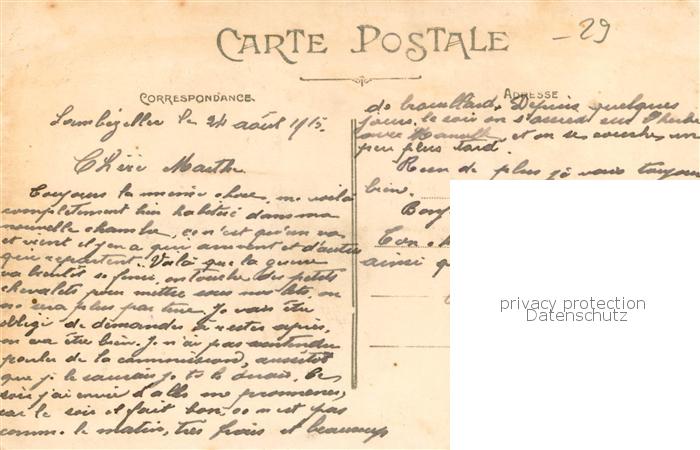 CARTE POSTALE
29
CORRESPONDANCE
ADRESSE
Lambézellec le 24 août 1915.
Chère Marthe
Toujours la même chose, me voilà
complètement bien habitué dans ma
nouvelle chambre, ce n'est qu'un va
et vient il y en a qui arrivent et d'autres
qui repartent. Voilà que la guerre
va bientôt se finir, on touche des petits
chevalets pour mettre sous nos lits, on
ne sera plus par terre. Je vais être
obligé de demander à rester après,
on va être bien. Je n'ai pas entendu
parler de la commission, aussitôt
que je le saurais je te le dirais. Ce
soir j'ai envie d'aller me promener,
car le soir il fait bon, ce n'est pas
comme le matin, très frais et beaucoup
de brouillard. Depuis quelques
jours, le soir on s'assied sur l'herbe
avec et on se couche un
peu plus tard.
Rien de plus, je vais toujours
bien.
Bon
Ton
ainsi q
privacy protection
Datenschutz